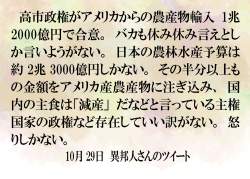 高市政権がアメリカからの農産物輸入 1兆
2000億円で合意。バカも休み休み言えとし
か言いようがない。日本の農林水産予算は
約2兆3000億円しかない。その半分以上も
の金額をアメリカ産農産物に注ぎ込み、国
内の主食は「減産」だなどと言っている主権
国家の政権など存在していい訳がない。怒
りしかない。
10月29日 異邦人さんのツイート